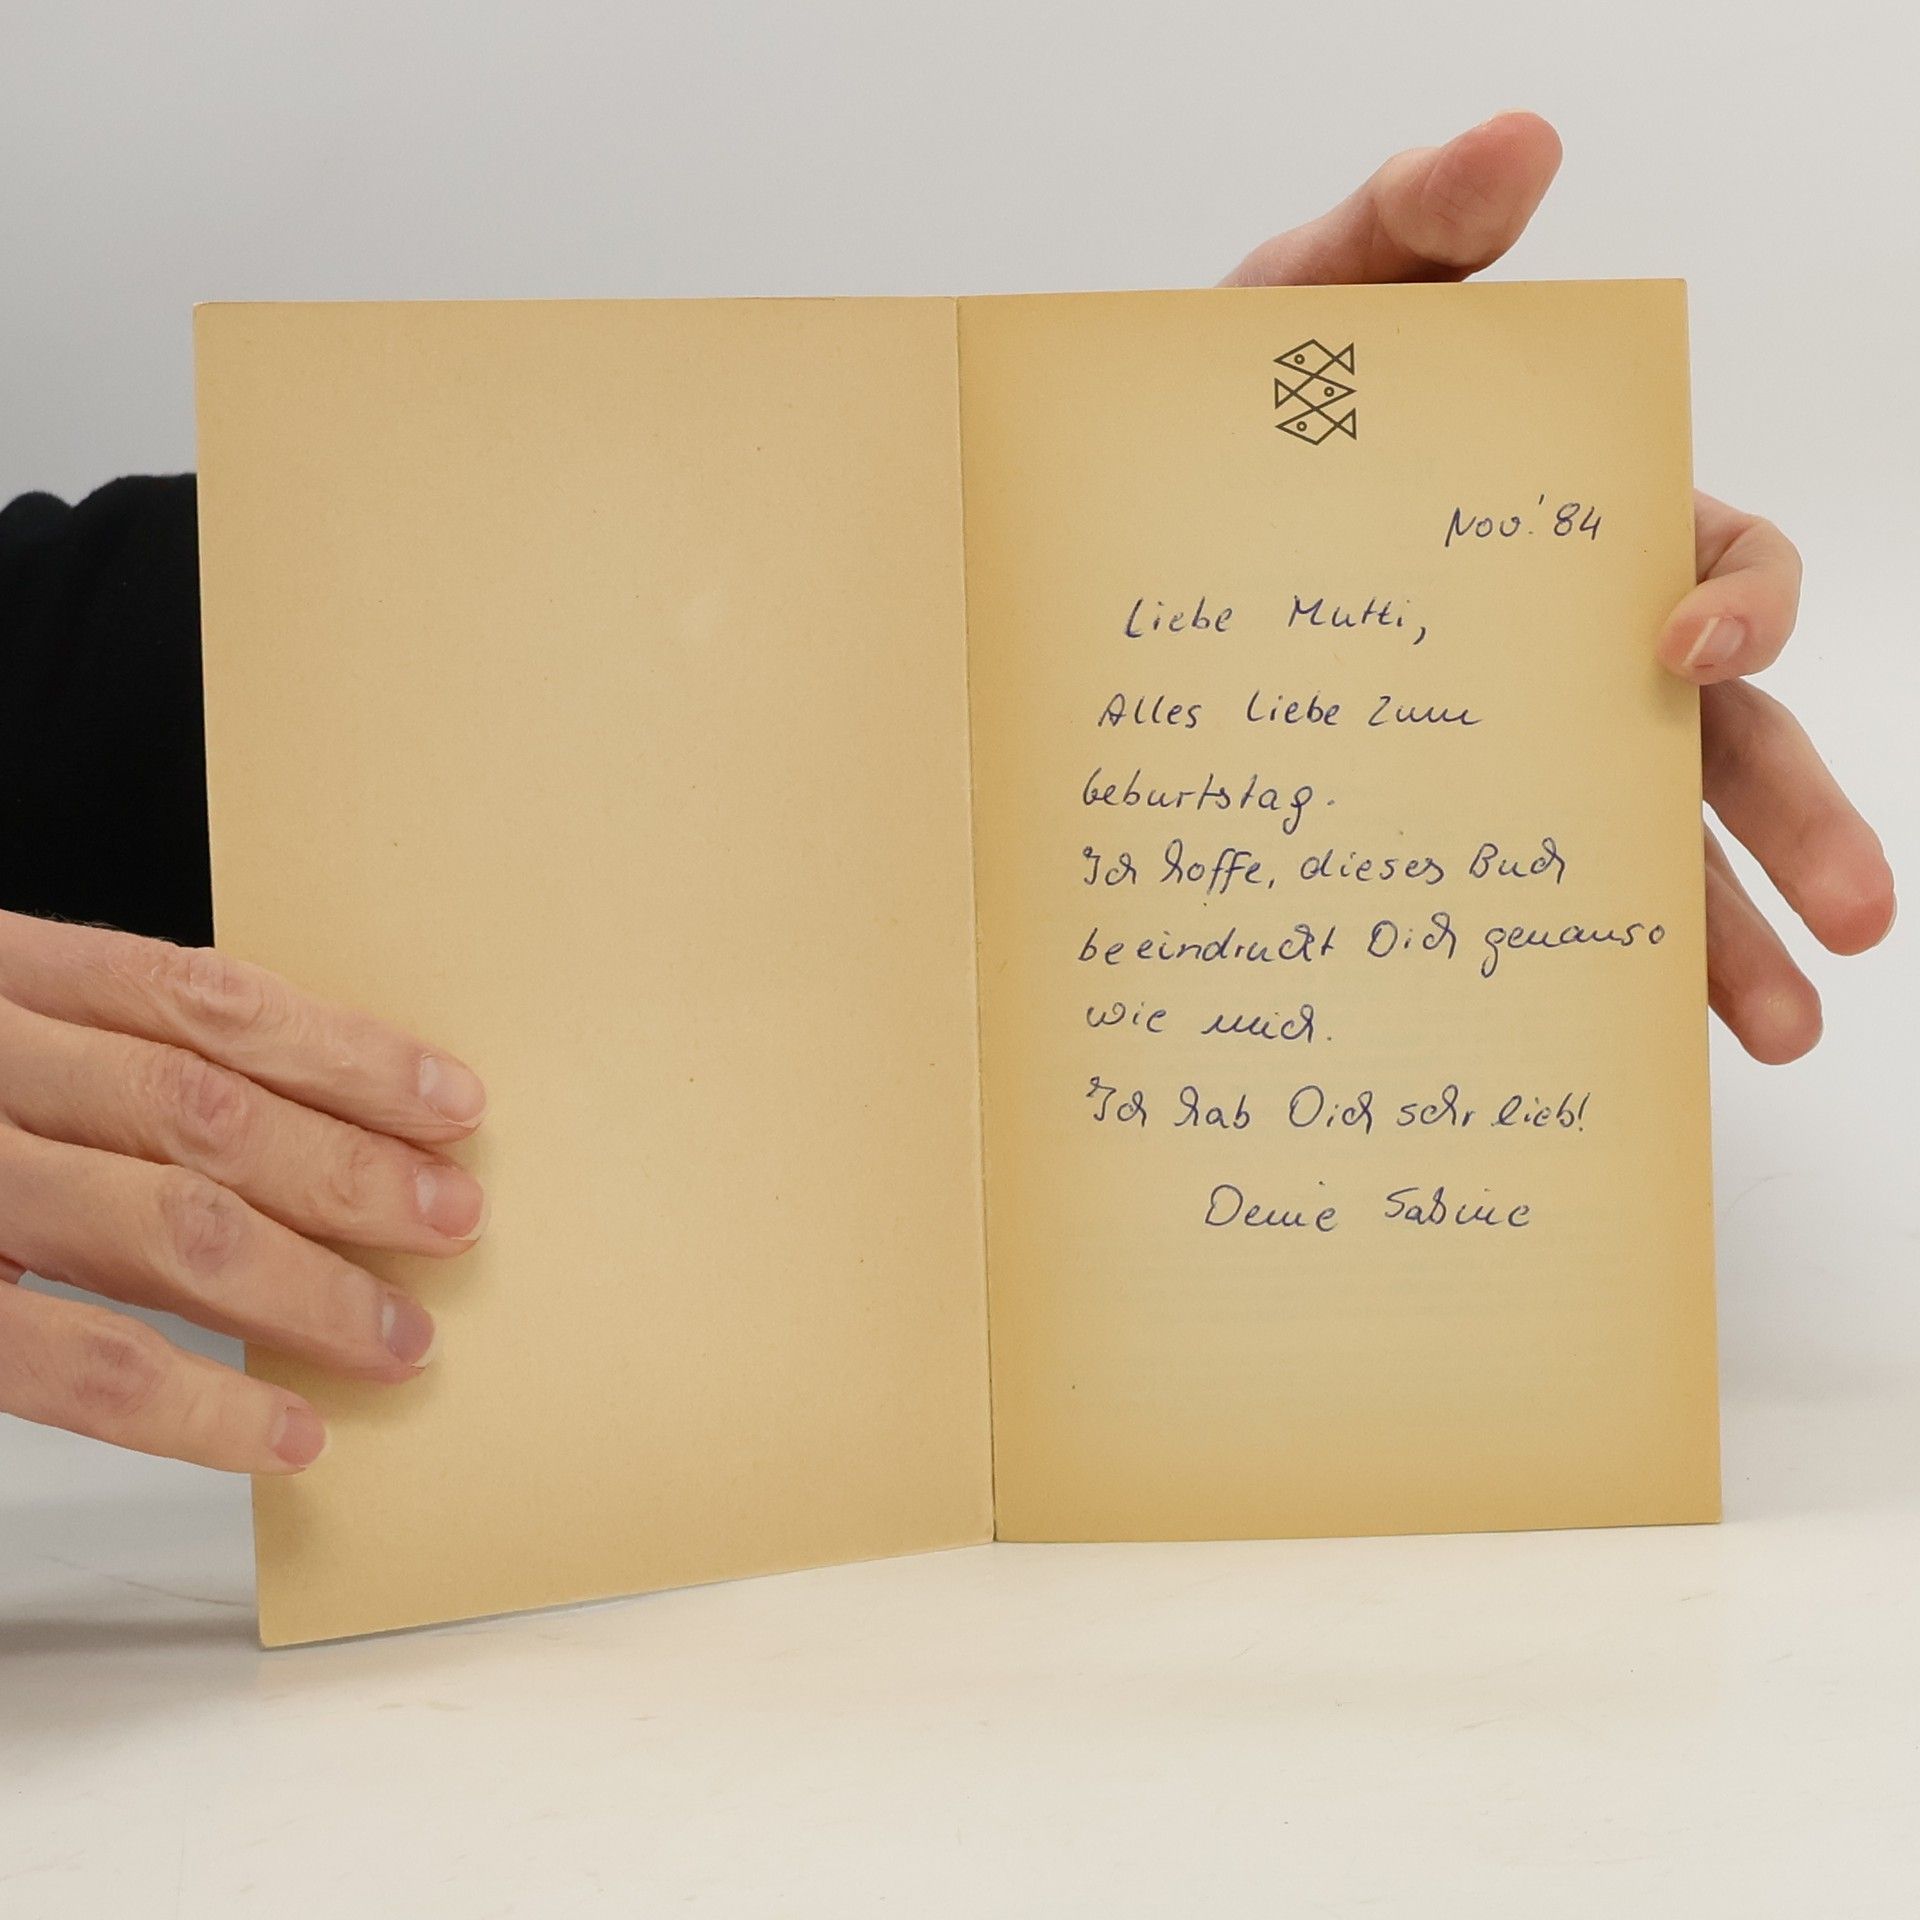 Nov.'84
Liebe Mutti,
Alles Liebe zum
Geburtstag.
Ich hoffe, dieses Buch
beeindruckt Dich genauso
wie mich.
Ich hab Dich sehr lieb!
Deine Sabine